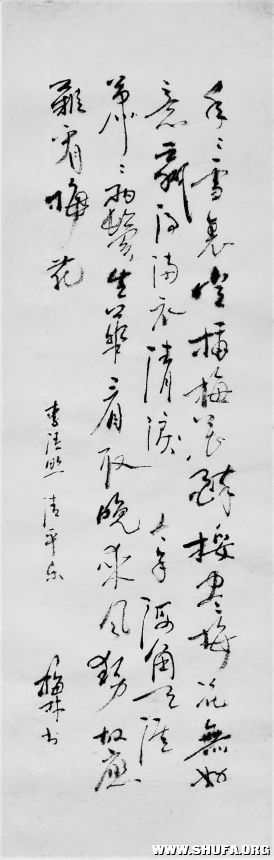 年々雪裏常插梅花醉挼盡梅花無好
意贏得滿衣清淚今年海角天涯
蕭々兩鬢生華看取晚來風勢故應
難看梅花
李清照 清平乐
梅林书
WWW.SHUFA.ORG